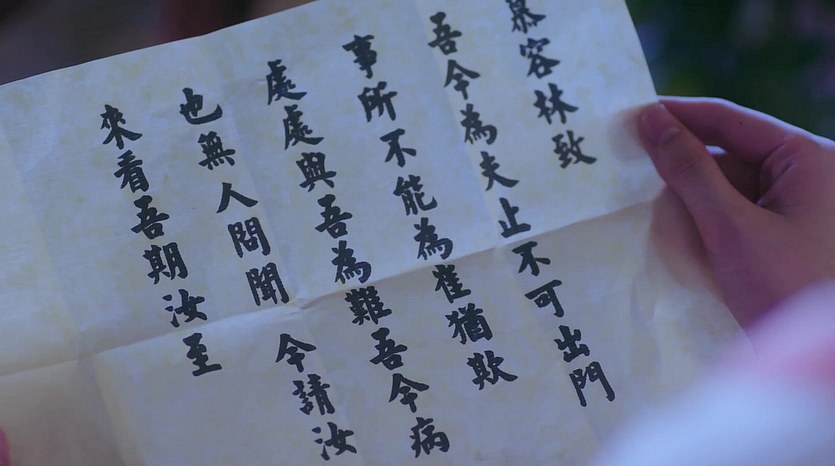 慕容林致
吾今為夫止不可出門
事所不能為崔猶欺
處處與吾為難吾今病
也無人問聞 今請汝
來看吾期汝至